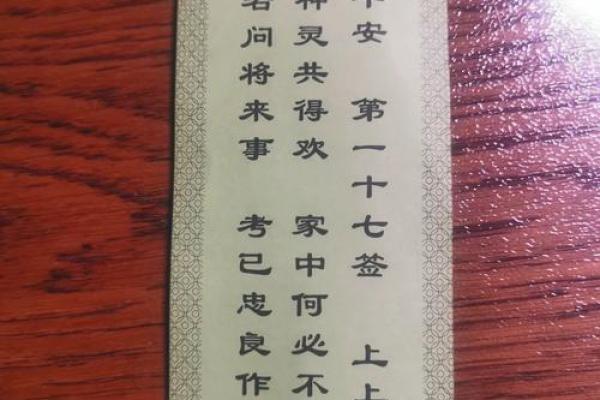 安 第一十七签 上上
神灵共得欢 家中何必不
若问将来事 考己忠良作